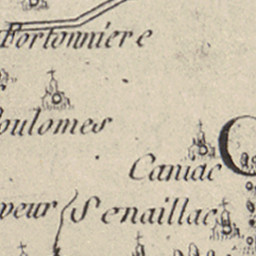 Fortonniere
oulomes
Caniac
veur Senaillac